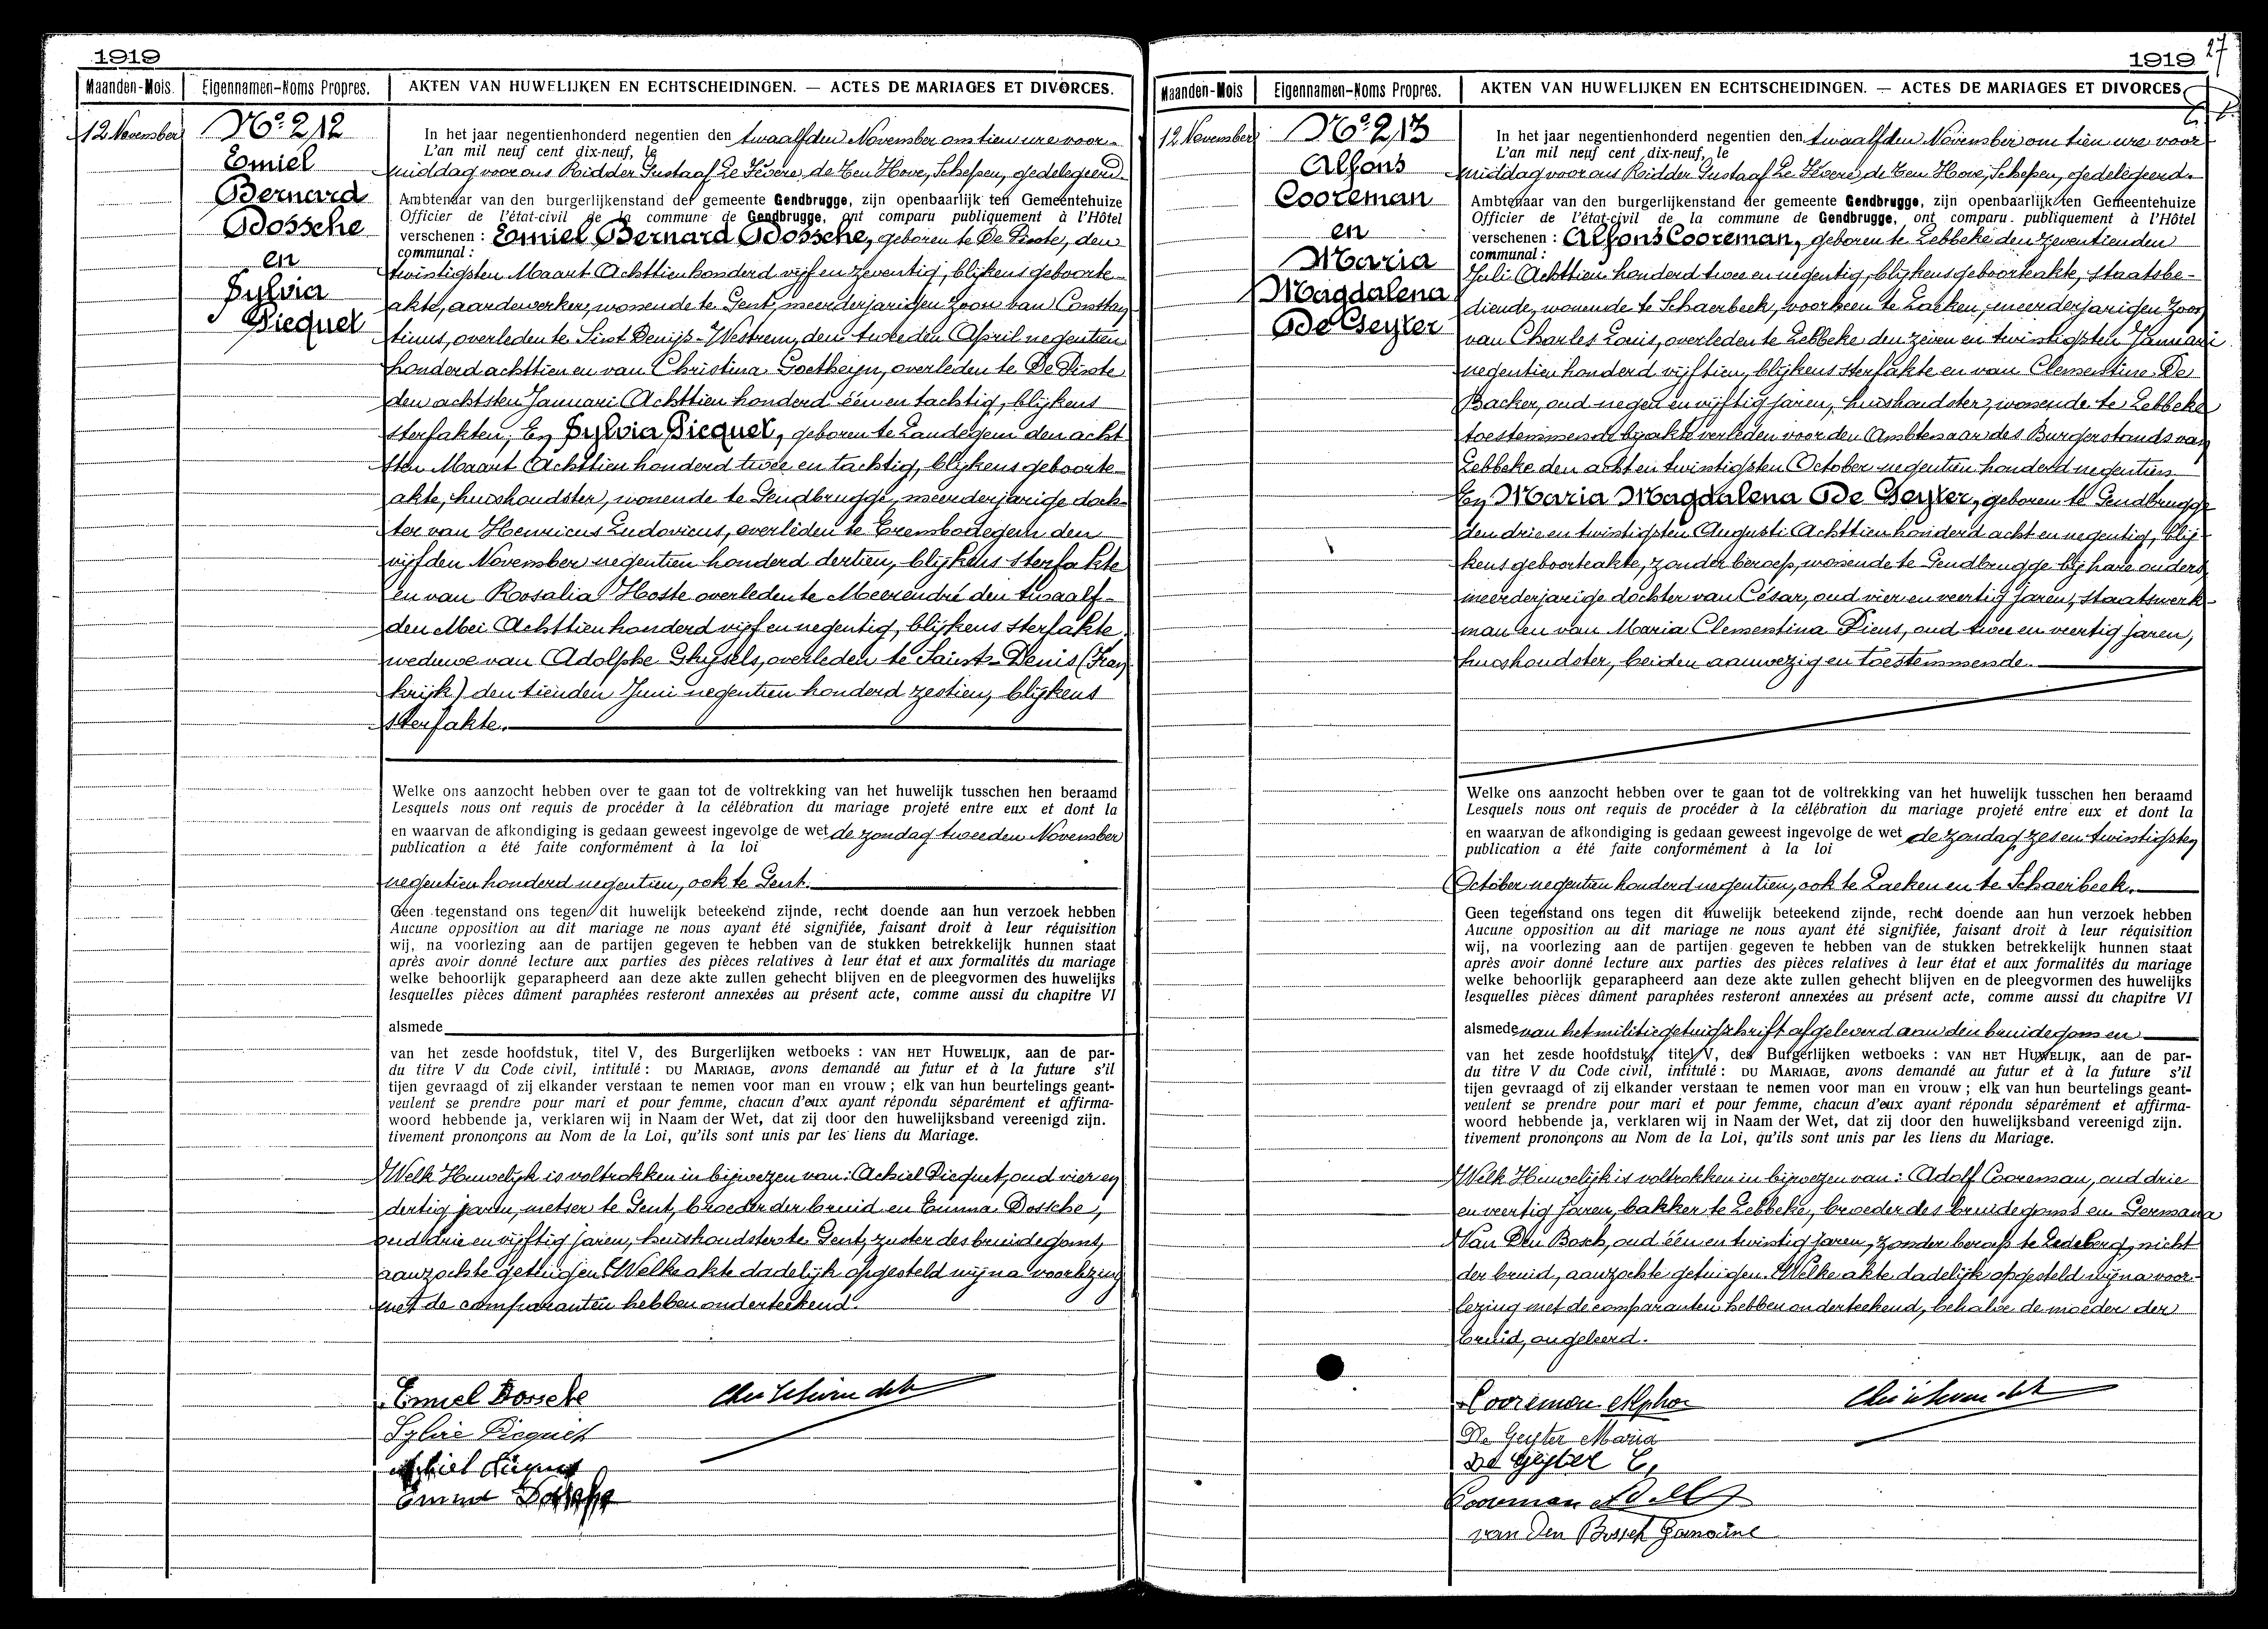 1919
Maanden-Mois.
Eigennamen-Noms Propres.
AKTEN VAN HUWELIJKEN EN ECHTSCHEIDINGEN. — ACTES DE MARIAGES ET DIVORCES.
12 November
No. 212
Emiel
Bernard
Dossche
en
Sylvia
Picquet
In het jaar negentienhonderd negentien den twaalfden November om tien ure voor-
L'an mil neuf cent dix-neuf, le
middag voor ons Ridder Gustaaf Le Févere de Ten Hove, Schepen, gedelegeerd.
Ambtenaar van den burgerlijkenstand der gemeente Gendbrugge, zijn openbaarlijk ten Gemeentehuize
Officier de l'état-civil de la commune de Gendbrugge, ont comparu publiquement à l'Hôtel
verschenen : Emiel Bernard Dossche, geboren te De Pinte, den
communal :
twintigsten Maart Achttien honderd vijf en zeventig, blijkens geboorte-
akte, aardewerker, wonende te Gent, meerderjarigen zoon van Constan-
tinus, overleden te Sint Denijs-Westrem, den tweeden April negentien
honderd achttien en van Christina Goetheyn, overleden te De Pinte
den achtsten Januari Achttien honderd één en tachtig, blijkens
sterfakten; En Sylvia Picquet, geboren te Landegem den acht
sten Maart Achttien honderd twee en tachtig, blijkens geboorte-
akte, huishoudster, wonende te Gendbrugge, meerderjarige doch-
ter van Henricus Ludovicus, overleden te Erembodegem den
vijfden November negentien honderd dertien, blijkens sterfakte
en van Rosalia Hoste overleden te Meerendré den twaalf-
den Mei Achttien honderd vijf en negentig, blijkens sterfakte,
weduwe van Adolphe Ghysels, overleden te Saint-Denis (Fran-
krijk) den tienden Juni negentien honderd zestien, blijkens
sterfakte.
Welke ons aanzocht hebben over te gaan tot de voltrekking van het huwelijk tusschen hen beraamd
Lesquels nous ont requis de procéder à la célébration du mariage projeté entre eux et dont la
en waarvan de afkondiging is gedaan geweest ingevolge de wet de zondag tweeden November
publication a été faite conformément à la loi
negentien honderd negentien, ook te Gent.
Geen tegenstand ons tegen dit huwelijk beteekend zijnde, recht doende aan hun verzoek hebben
Aucune opposition au dit mariage ne nous ayant été signifiée, faisant droit à leur réquisition
wij, na voorlezing aan de partijen gegeven te hebben van de stukken betrekkelijk hunnen staat
après avoir donné lecture aux parties des pièces relatives à leur état et aux formalités du mariage
welke behoorlijk geparapheerd aan deze akte zullen gehecht blijven en de pleegvormen des huwelijks
lesquelles pièces dûment paraphées resteront annexées au présent acte, comme aussi du chapitre VI
alsmede
van het zesde hoofdstuk, titel V, des Burgerlijken wetboeks : VAN HET HUWELIJK, aan de par-
du titre V du Code civil, intitulé : DU MARIAGE, avons demandé au futur et à la future s'il
tijen gevraagd of zij elkander verstaan te nemen voor man en vrouw ; elk van hun beurtelings geant-
veulent se prendre pour mari et pour femme, chacun d'eux ayant répondu séparément et affirma-
woord hebbende ja, verklaren wij in Naam der Wet, dat zij door den huwelijksband vereenigd zijn.
tivement prononçons au Nom de la Loi, qu'ils sont unis par les liens du Mariage.
Welk Huwelijk is voltrokken in bijwezen van: Achiel Picquet, oud vier en
dertig jaren, metser te Gent, broeder der bruid en Emma Dossche,
oud drie en vijftig jaren, huishoudster te Gent, zuster des bruidegoms,
aanzochte getuigen. Welke akte dadelijk opgesteld wij na voorlezing
met de comparanten hebben onderteekend.
Emiel Dossche
Sylvie Picquet
Emma Dossche
1919
27
Maanden-Mois
Eigennamen-Noms Propres.
AKTEN VAN HUWELIJKEN EN ECHTSCHEIDINGEN. — ACTES DE MARIAGES ET DIVORCES.
12 November
No. 213
Alfons
Cooreman
en
Maria
Magdalena
De Geyter
In het jaar negentienhonderd negentien den twaalfden November om tien ure voor-
L'an mil neuf cent dix-neuf, le
middag voor ons Ridder Gustaaf Le Févere de Ten Hove, Schepen, gedelegeerd.
Ambtenaar van den burgerlijkenstand der gemeente Gendbrugge, zijn openbaarlijk ten Gemeentehuize
Officier de l'état-civil de la commune de Gendbrugge, ont comparu publiquement à l'Hôtel
verschenen : Alfons Cooreman, geboren te Lebbeke den zeventienden
communal :
Juli Achttien honderd twee en negentig, blijkens geboorteakte, staatsbe-
diende, wonende te Schaerbeek, voorheen te Laeken, meerderjarigen zoon
van Charles Louis, overleden te Lebbeke den zeven en twintigsten Januari
negentien honderd vijftien, blijkens sterfakte en van Clementine De
Backer, oud negen en vijftig jaren, huishoudster, wonende te Lebbeke
toestemmende bij akte verleden voor den Ambtenaar des Burgerstands van
Lebbeke den acht en twintigsten October negentien honderd negentien.
En Maria Magdalena De Geyter, geboren te Gendbrugge
den drie en twintigsten Augusti Achttien honderd acht en negentig, blij-
kens geboorteakte, zonder beroep, wonende te Gendbrugge bij hare ouders,
meerderjarige dochter van César, oud vier en veertig jaren, staatswerk-
man en van Maria Clementina Piens, oud twee en veertig jaren,
huishoudster, beiden aanwezig en toestemmende.
Welke ons aanzocht hebben over te gaan tot de voltrekking van het huwelijk tusschen hen beraamd
Lesquels nous ont requis de procéder à la célébration du mariage projeté entre eux et dont la
en waarvan de afkondiging is gedaan geweest ingevolge de wet de zondag zes en twintigsten
publication a été faite conformément à la loi
October negentien honderd negentien, ook te Laeken en te Schaerbeek.
Geen tegenstand ons tegen dit huwelijk beteekend zijnde, recht doende aan hun verzoek hebben
Aucune opposition au dit mariage ne nous ayant été signifiée, faisant droit à leur réquisition
wij, na voorlezing aan de partijen gegeven te hebben van de stukken betrekkelijk hunnen staat
après avoir donné lecture aux parties des pièces relatives à leur état et aux formalités du mariage
welke behoorlijk geparapheerd aan deze akte zullen gehecht blijven en de pleegvormen des huwelijks
lesquelles pièces dûment paraphées resteront annexées au présent acte, comme aussi du chapitre VI
alsmede van het militiegetuigschrift afgeleverd aan den bruidegom en
van het zesde hoofdstuk, titel V, des Burgerlijken wetboeks : VAN HET HUWELIJK, aan de par-
du titre V du Code civil, intitulé : DU MARIAGE, avons demandé au futur et à la future s'il
tijen gevraagd of zij elkander verstaan te nemen voor man en vrouw ; elk van hun beurtelings geant-
veulent se prendre pour mari et pour femme, chacun d'eux ayant répondu séparément et affirma-
woord hebbende ja, verklaren wij in Naam der Wet, dat zij door den huwelijksband vereenigd zijn.
tivement prononçons au Nom de la Loi, qu'ils sont unis par les liens du Mariage.
Welk Huwelijk is voltrokken in bijwezen van: Adolf Cooreman, oud drie
en veertig jaren, bakker te Lebbeke, broeder des bruidegoms en Germana
Van Den Bosch, oud één en twintig jaren, zonder beroep te Ledeberg, nicht
der bruid, aanzochte getuigen. Welke akte dadelijk opgesteld wij na voor-
lezing met de comparanten hebben onderteekend, behalve de moeder der
bruid, ongeleerd.
Cooreman Alphons
De Geyter Maria
De Geyter C.
Cooreman Adolf
van Den Bossch Germaine